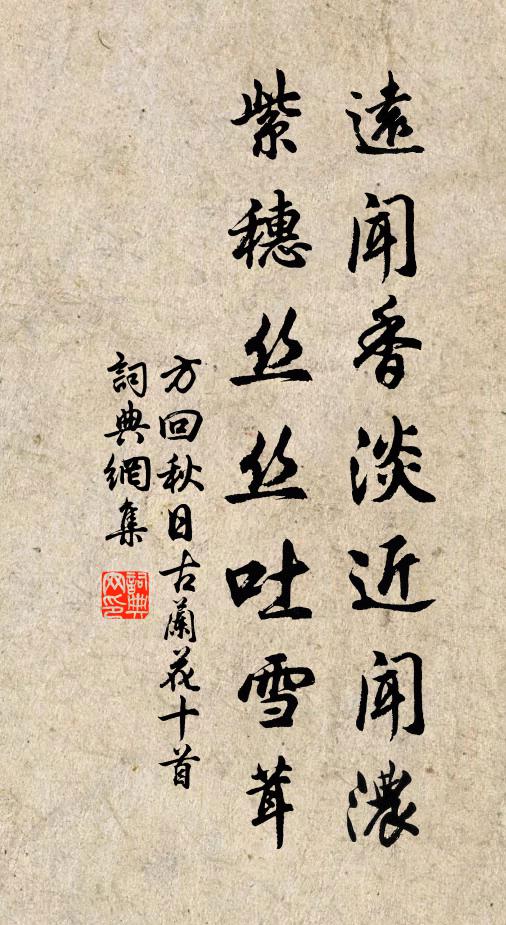 遠聞香淡近聞濃
紫穗丝丝吐雪茸
方回秋日古蘭花十首
詞典網集
詞典网印